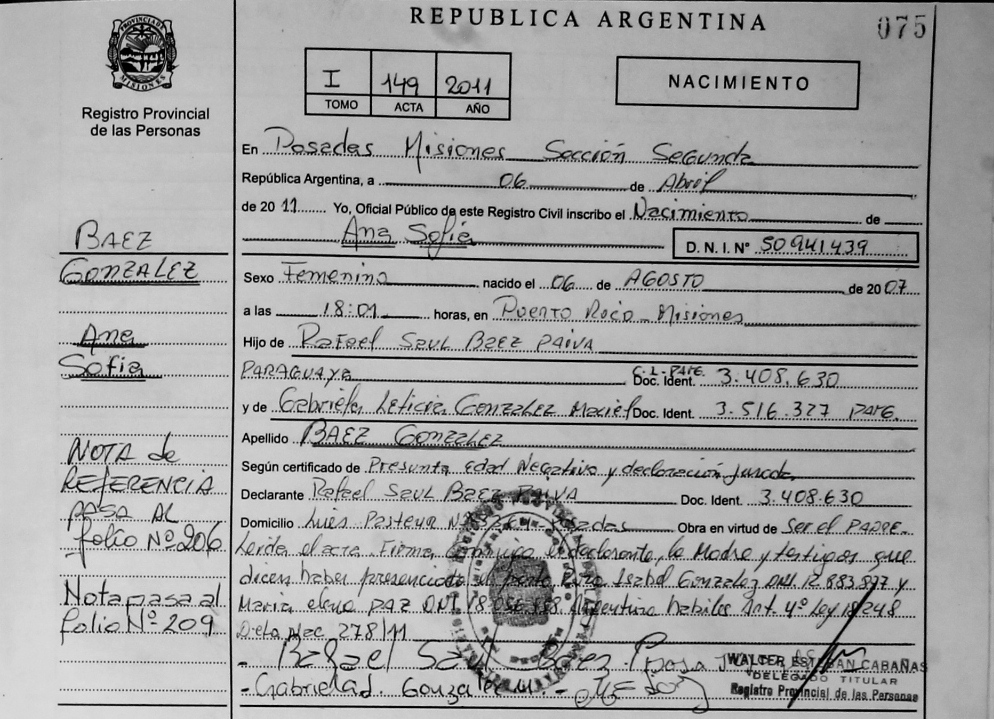 REPUBLICA ARGENTINA
075
PROVINCIA DE MISIONES
Registro Provincial
de las Personas
I 149 2011
TOMO ACTA AÑO
NACIMIENTO
En Posadas Misiones Sección Segunda
República Argentina, a 06 de Abril
de 2011 Yo, Oficial Público de este Registro Civil inscribo el Nacimiento de
Ana Sofia D.N.I. Nº 50941439
Sexo Femenino nacido el 06 de AGOSTO de 2007
a las 18:01 horas, en Puerto Rico - Misiones
Hijo de Rafael Saul Baez PAIVA
PARAGUAYA C.I. PARG. Doc. Ident. 3.408.630
y de Gabriela Leticia Gonzalez Maciel Doc. Ident. 3.516.327 PARG.
Apellido BAEZ GONZALEZ
Según certificado de Presunta edad Negativo y declaración jurada
Declarante Rafael Saul Baez PAIVA Doc. Ident. 3.408.630
Domicilio Luis Pasteur Nº Posadas Obra en virtud de Ser el PADRE.
Leida el acta Firma conmigo el declarante, la Madre y testigos que
dicen haber presenciado el parto Isabel Gonzalez DNI 12.883.877 y
Maria elena PAZ DNI Argentina habiles Art. 4º Ley 18248
Dcto Nac 278/11
Rafael Saul Baez P Rosa
Gabriela Gonzalez M
WALTER ESTEBAN CABAÑAS
DELEGADO TITULAR
Registro Provincial de las Personas
BAEZ
GONZALEZ
Ana
Sofia
NOTA de
REFERENCIA
PASA AL
folio Nº 206
Nota pasa al
folio Nº 209